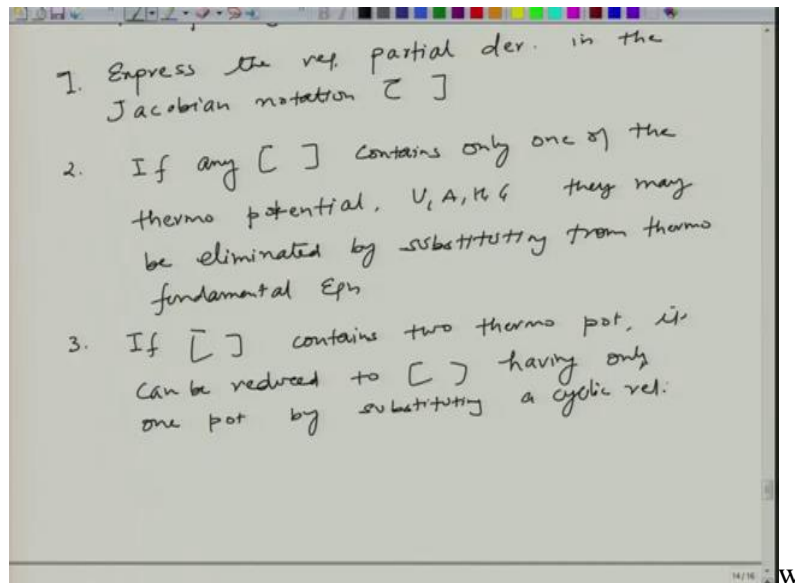 1. Express the req. partial der. in the
Jacobian notation [ ]
2. If any [ ] contains only one of the
thermo potential, U, A, H, G they may
be eliminated by substituting from thermo
fundamental Eqn
3. If [ ] contains two thermo pot, it
can be reduced to [ ] having only
one pot by substituting a cyclic rel.
14/16
w